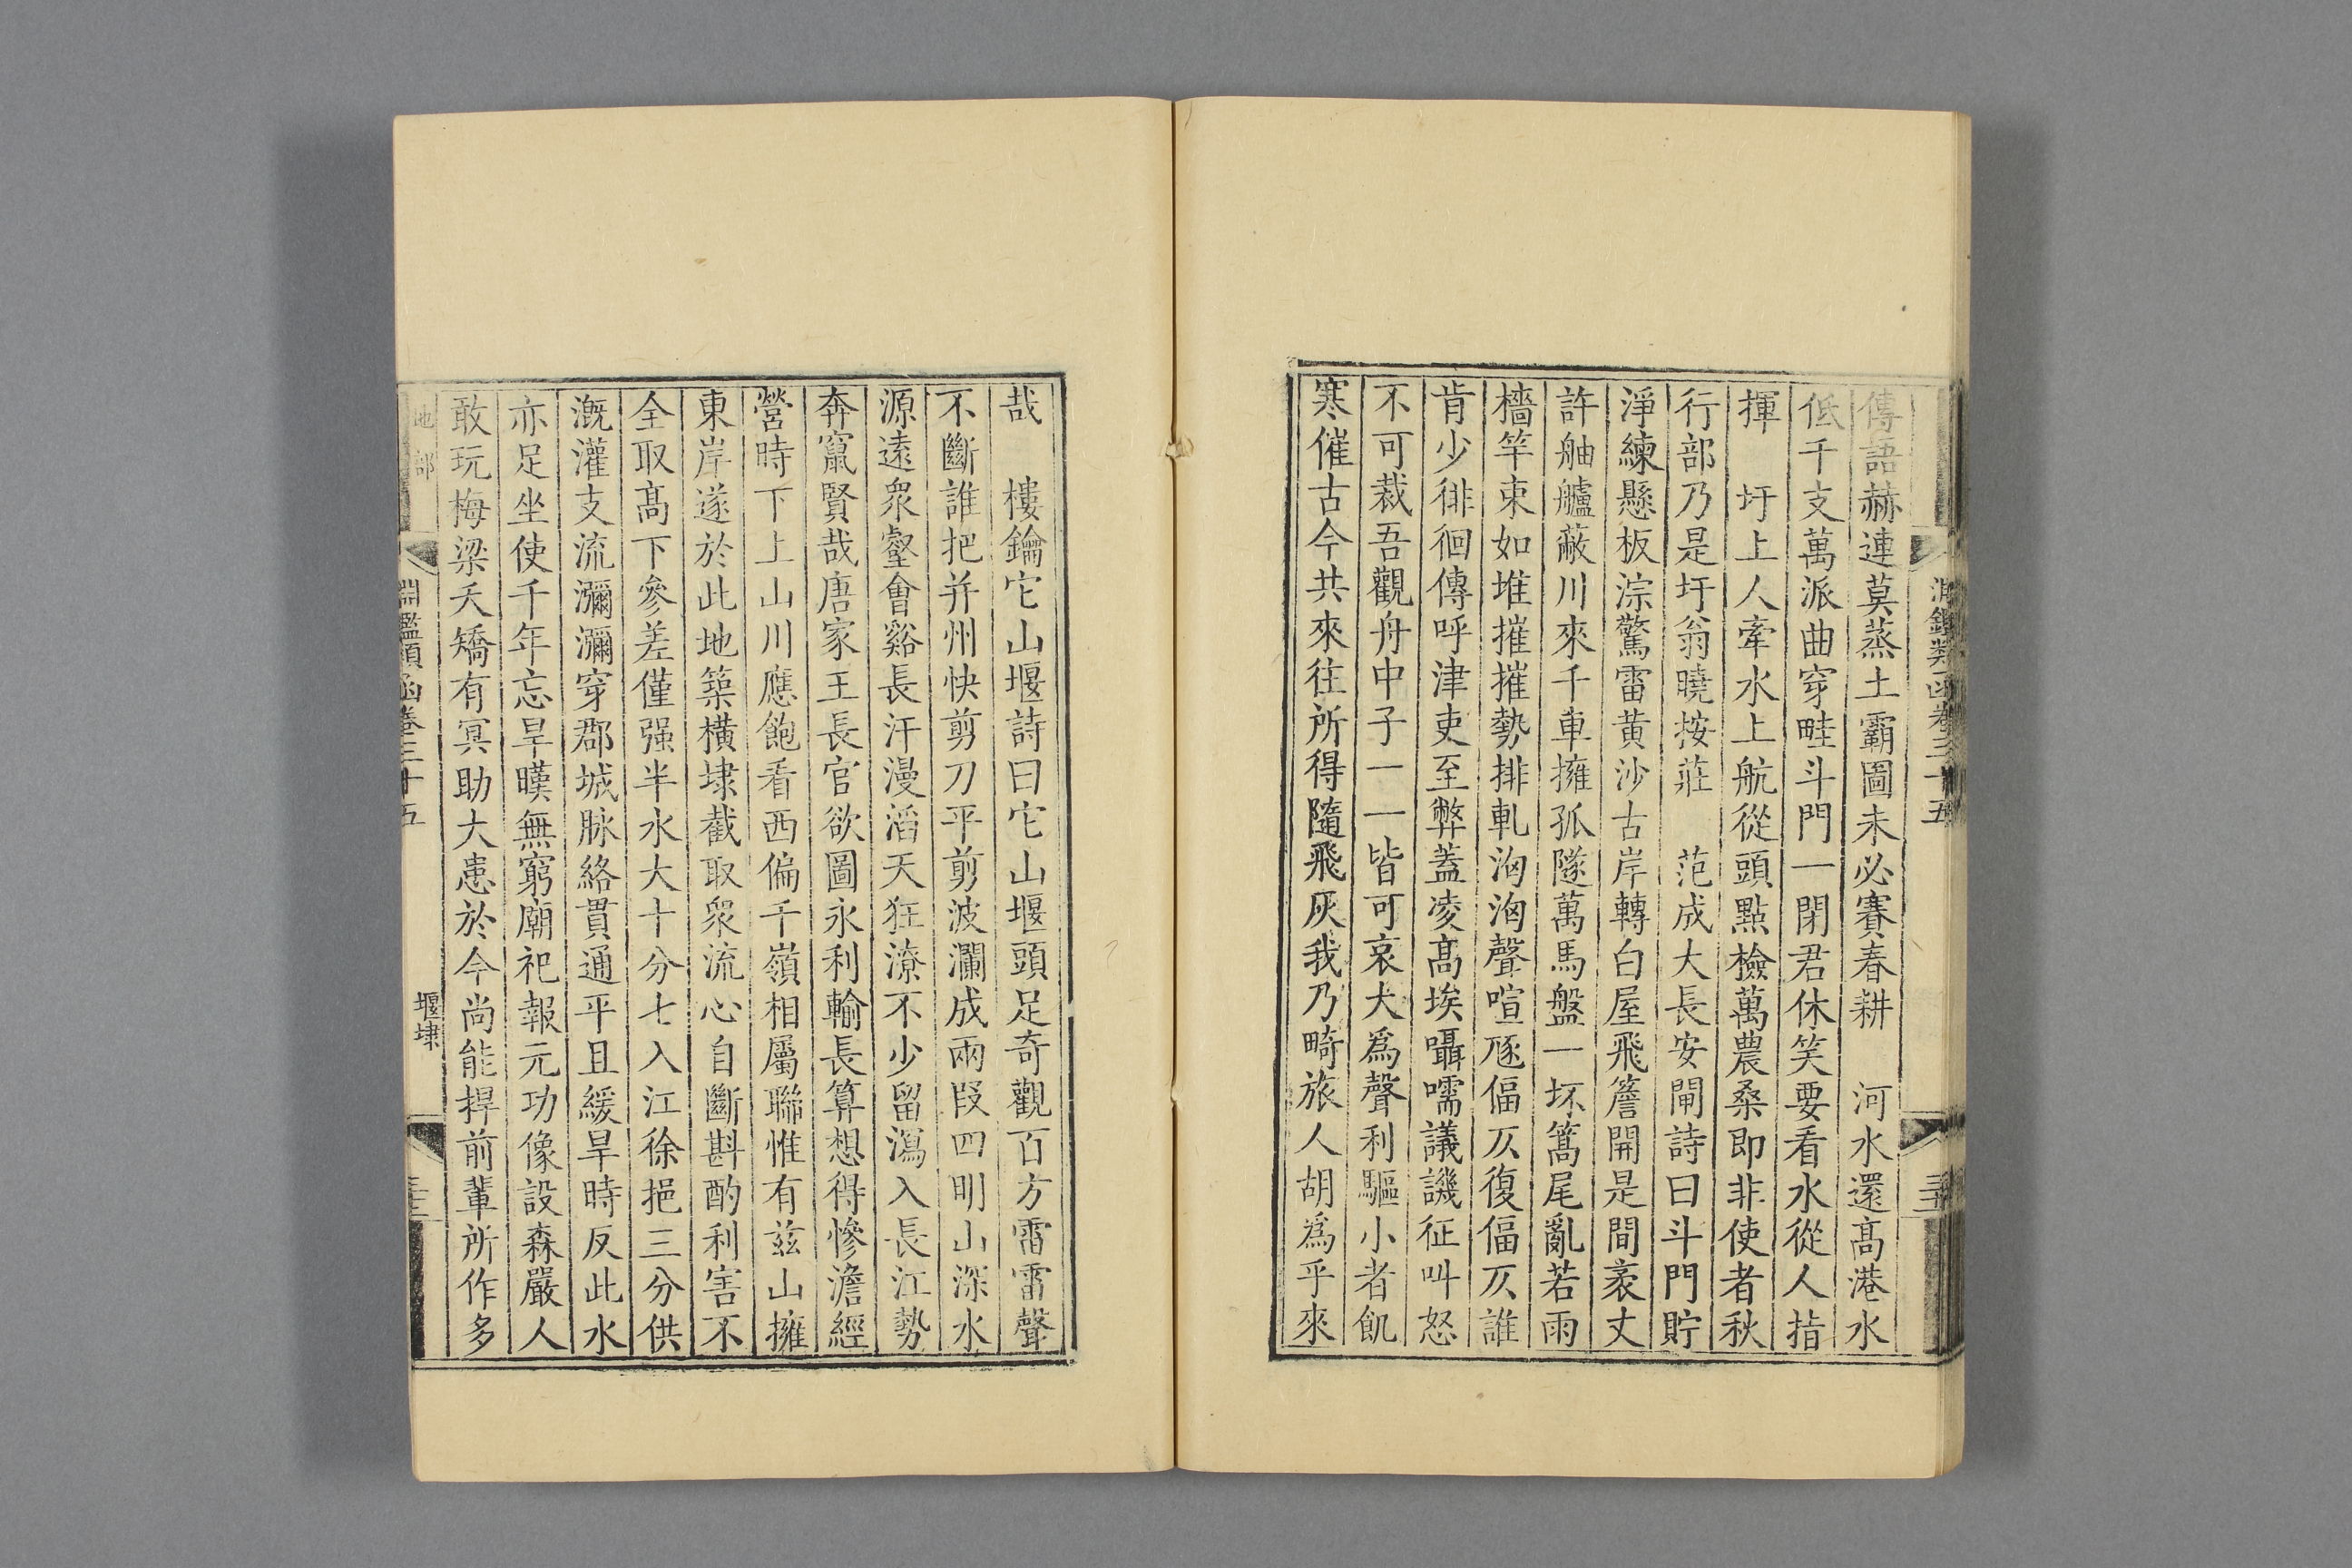 傳語赫連莫蒸土霸圖未必賽春耕　河水還髙港水
低千支萬派曲穿畦斗門一閉君休笑要看水從人指
揮　圩上人牽水上航從頭點檢萬農桑即非使者秋
行部乃是圩翁曉按莊　范成大長安閘詩曰斗門貯
淨練懸板淙驚雷黄沙古岸轉白屋飛簷開是間袤丈
許舳艫蔽川來千車擁孤隧萬馬盤一坏篙尾亂若雨
檣竿束如堆摧摧勢排軋洶洶聲喧豗偪仄復偪仄誰
肯少徘徊傳呼津吏至弊蓋凌髙埃囁嚅議譏征叫怒
不可裁吾觀舟中子一一皆可哀大爲聲利驅小者飢
寒催古今共來往所得隨飛灰我乃畸旅人胡爲乎來
哉　樓鑰它山堰詩曰它山堰頭足奇觀百方雷雷聲
不斷誰把并州快剪刀平剪波瀾成兩段四明山深水
源遠衆壑會谿長汗漫滔天狂潦不少留瀉入長江勢
奔竄賢哉唐家王長官欲圖永利輸長算想得慘澹經
營時下上山川應飽看西偏千嶺相屬聯惟有茲山擁
東岸遂於此地築横埭截取衆流心自斷斟酌利害不
全取髙下參差僅强半水大十分七入江徐挹三分供
溉灌支流瀰瀰穿郡城脉絡貫通平且緩旱時反此水
亦足坐使千年忘旱暵無窮廟祀報元功像設森嚴人
敢玩梅梁夭矯有冥助大患於今尚能捍前輩所作多
地部
淵鑑類函卷三十五
堰埭